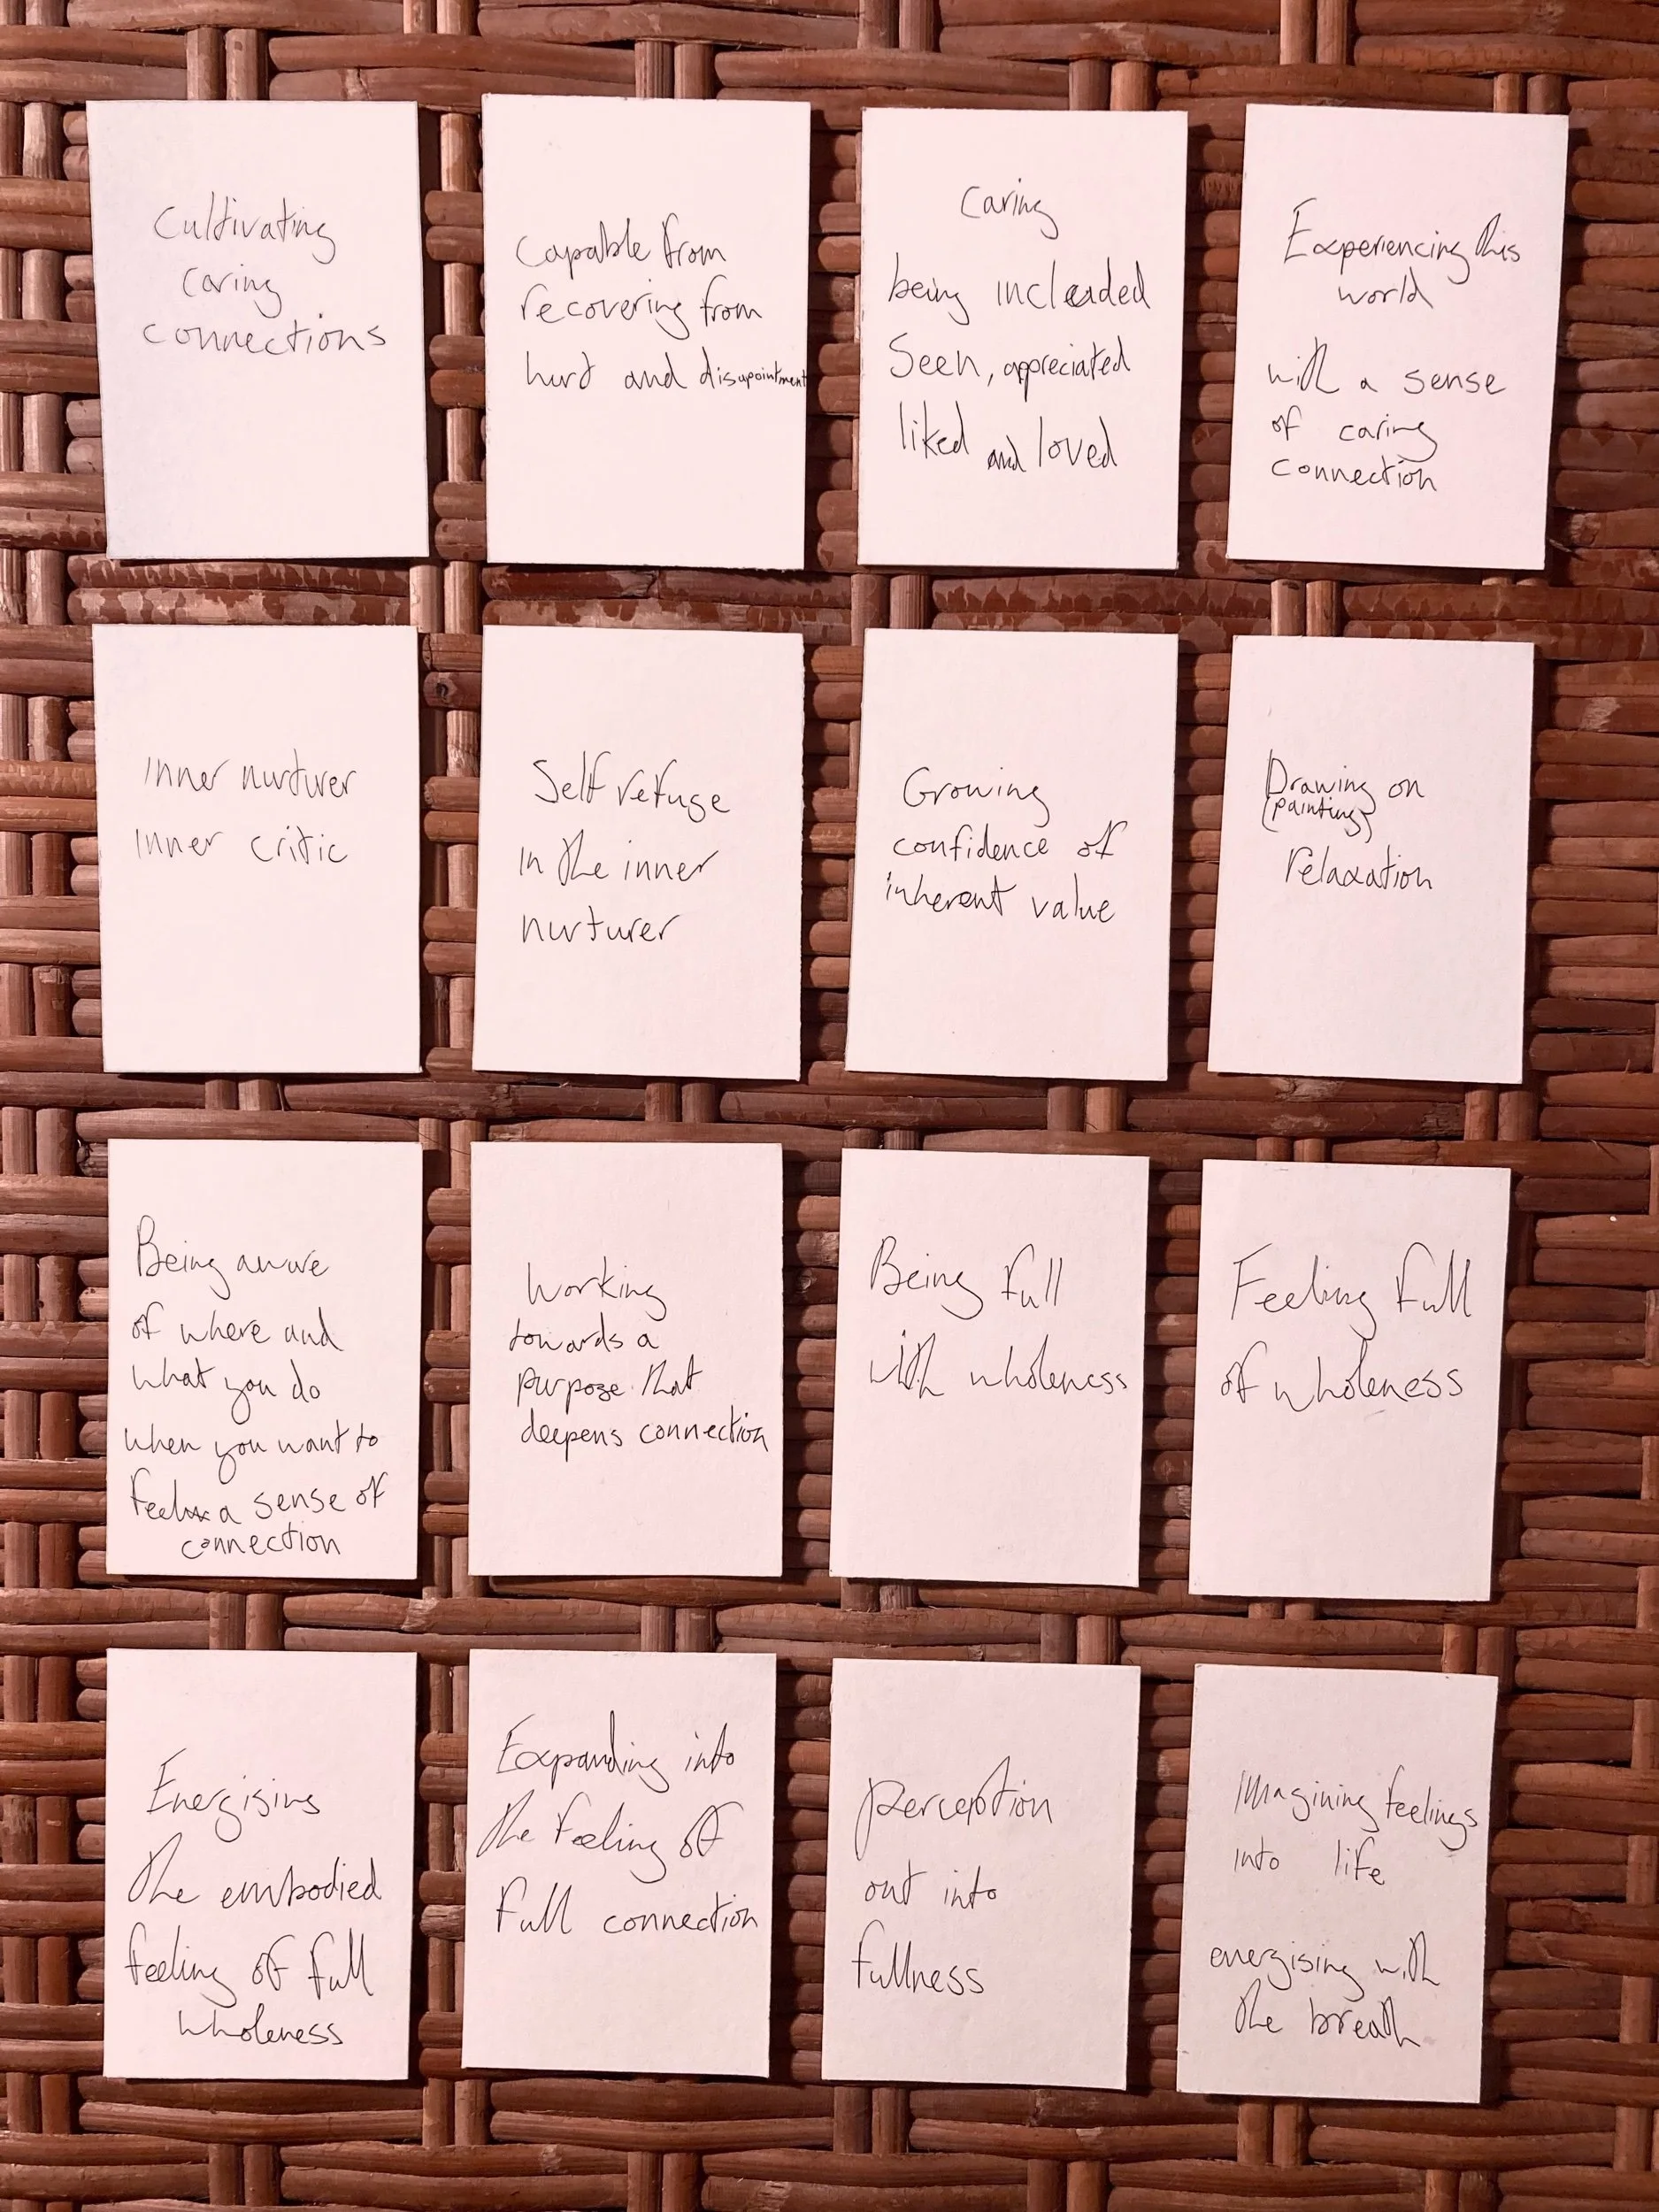 Cultivating
caring
connections
Capable from
recovering from
hurt and disapointment
caring
being included
Seen, appreciated
liked and loved
Experiencing this
world
with a sense
of caring
connection
Inner nurturer
Inner critic
Self refuge
in the inner
nurturer
Growing
confidence of
inherent value
Drawing on
(painting)
relaxation
Being aware
of where and
what you do
when you want to
feel a sense of
connection
Working
towards a
purpose that
deepens connection
Being full
with wholeness
Feeling full
of wholeness
Energising
the embodied
feeling of full
wholeness
Expanding into
the feeling of
full connection
perception
out into
fullness
Imagining feelings
into life
energising with
the breath